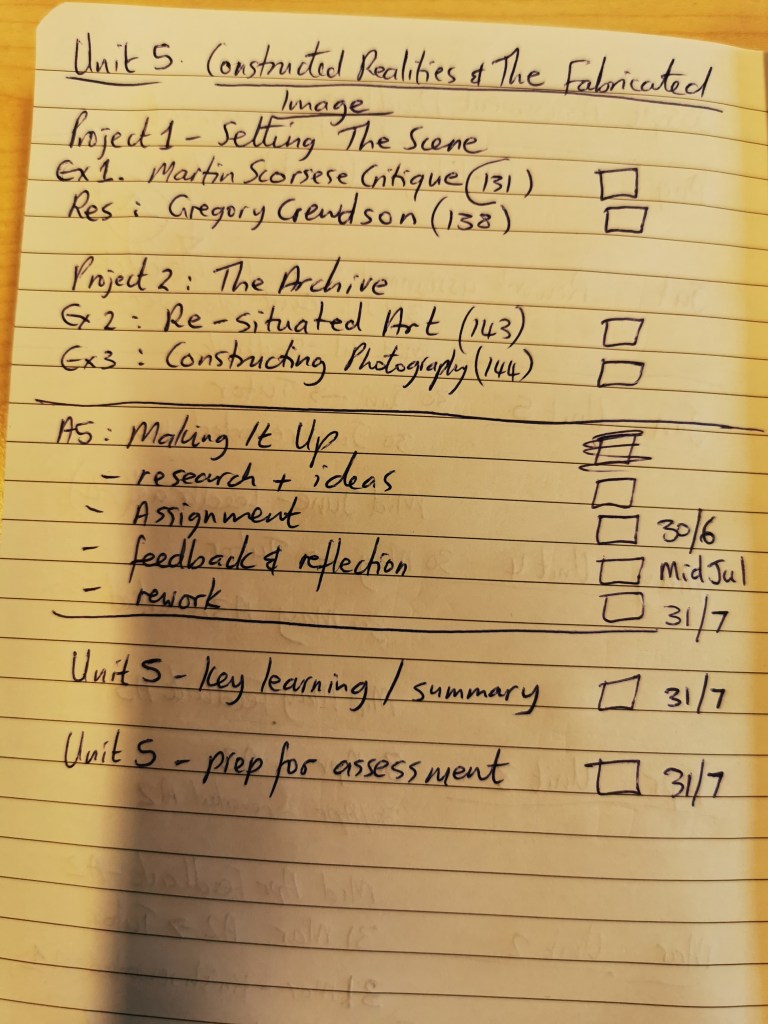 Unit 5. Constructed Realities & The Fabricated
Image
Project 1 - Setting The Scene
Ex 1. Martin Scorsese Critique (131)
Res : Gregory Crewdson (138)
Project 2 : The Archive
Ex 2 : Re-situated Art (143)
Ex3 : Constructing Photography (144)
A5 : Making It Up
- research + ideas
- Assignment 30/6
- feedback & reflection Mid Jul
- rework 31/7
Unit 5 - key learning / summary 31/7
Unit 5 - prep for assessment 31/7